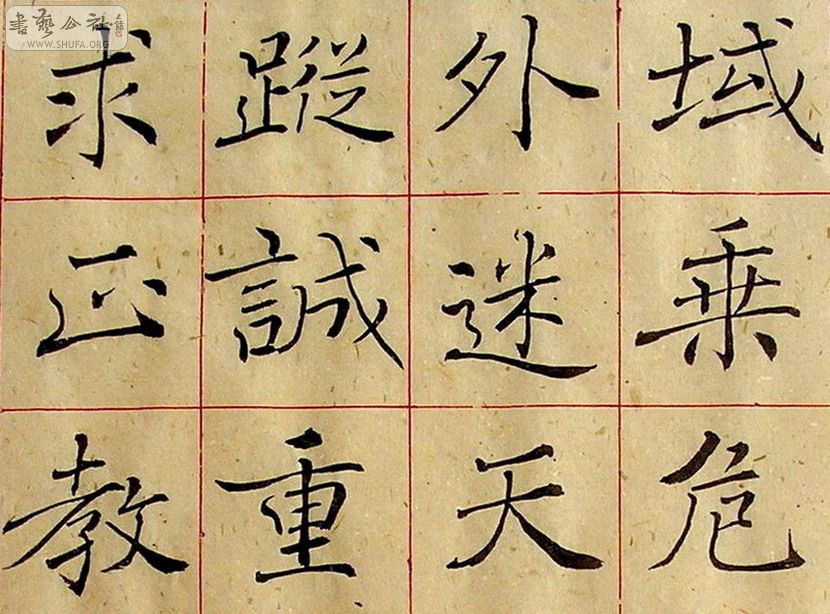 域乗危
外迷天
蹤誠重
求正教
書藝公社
WWW.SHUFA.ORG